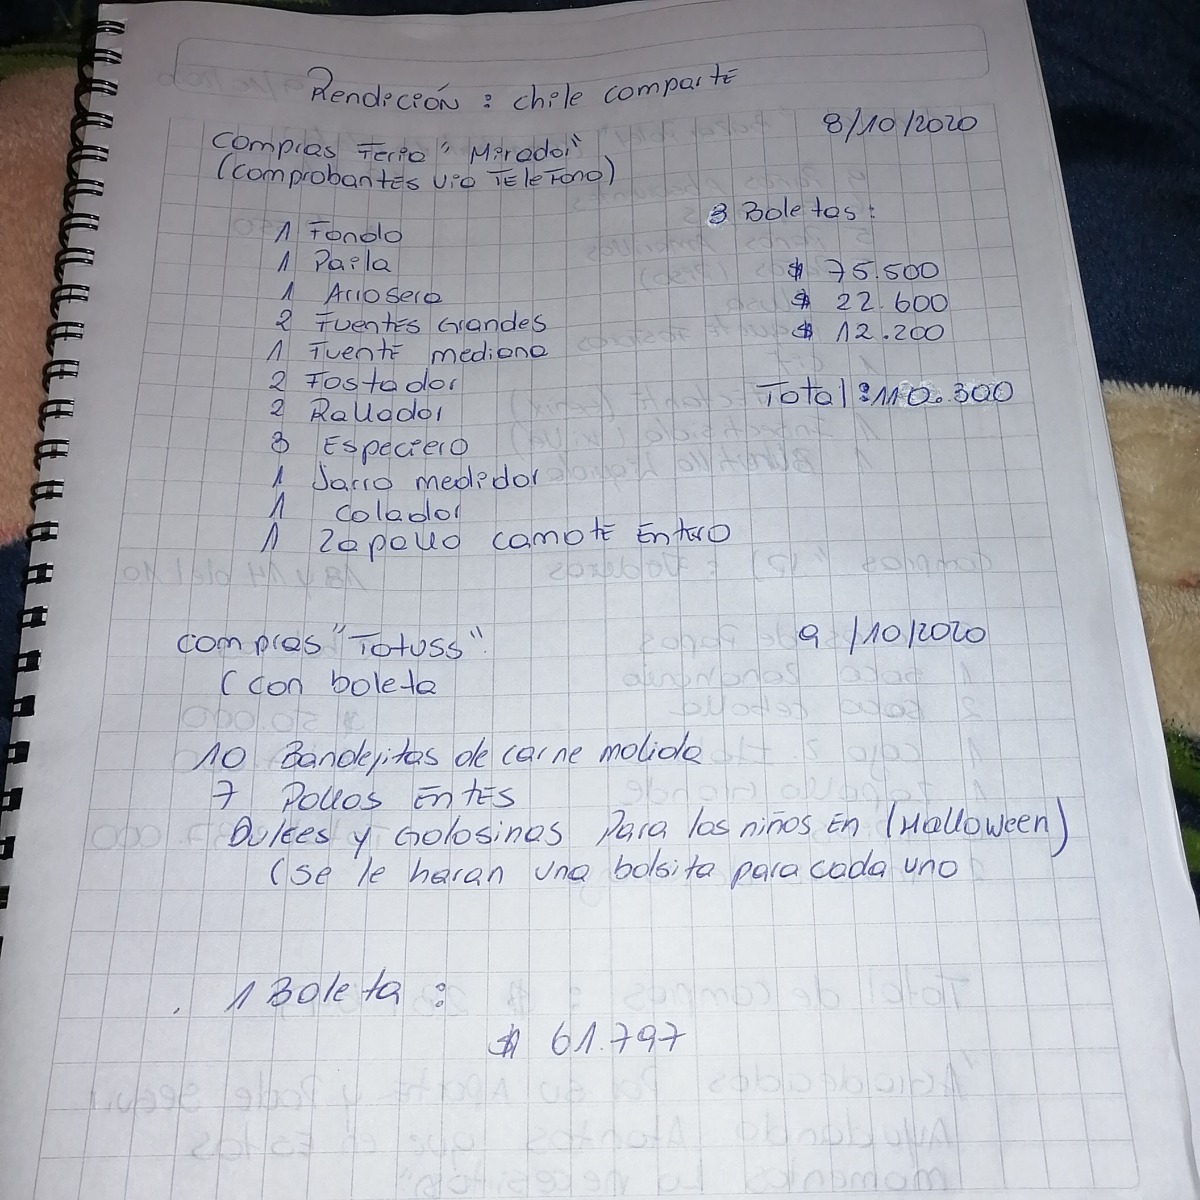 Rendición : chile comparte
8/10/2020
compras Feria "Mirador"
(comprobantes via TELEFono)
3 Boletas:
1 Fondo
1 Paila
$ 75.500
1 Arrosera
$ 22.600
2 Fuentes Grandes
$ 12.200
1 Fuente mediana
2 Tostador
Total : 110.300
2 Rallador
3 Especiero
1 Jarro medidor
1 colador
1 Zapallo camote Entero
compras "Totuss"
9/10/2020
(con boleta
10 Bandejitas de carne molida
7 Pollos Entes
Dulces y Golosinas Para los niños En (Halloween)
(se le haran una bolsita para cada uno
. 1 Boleta :
$ 61.797